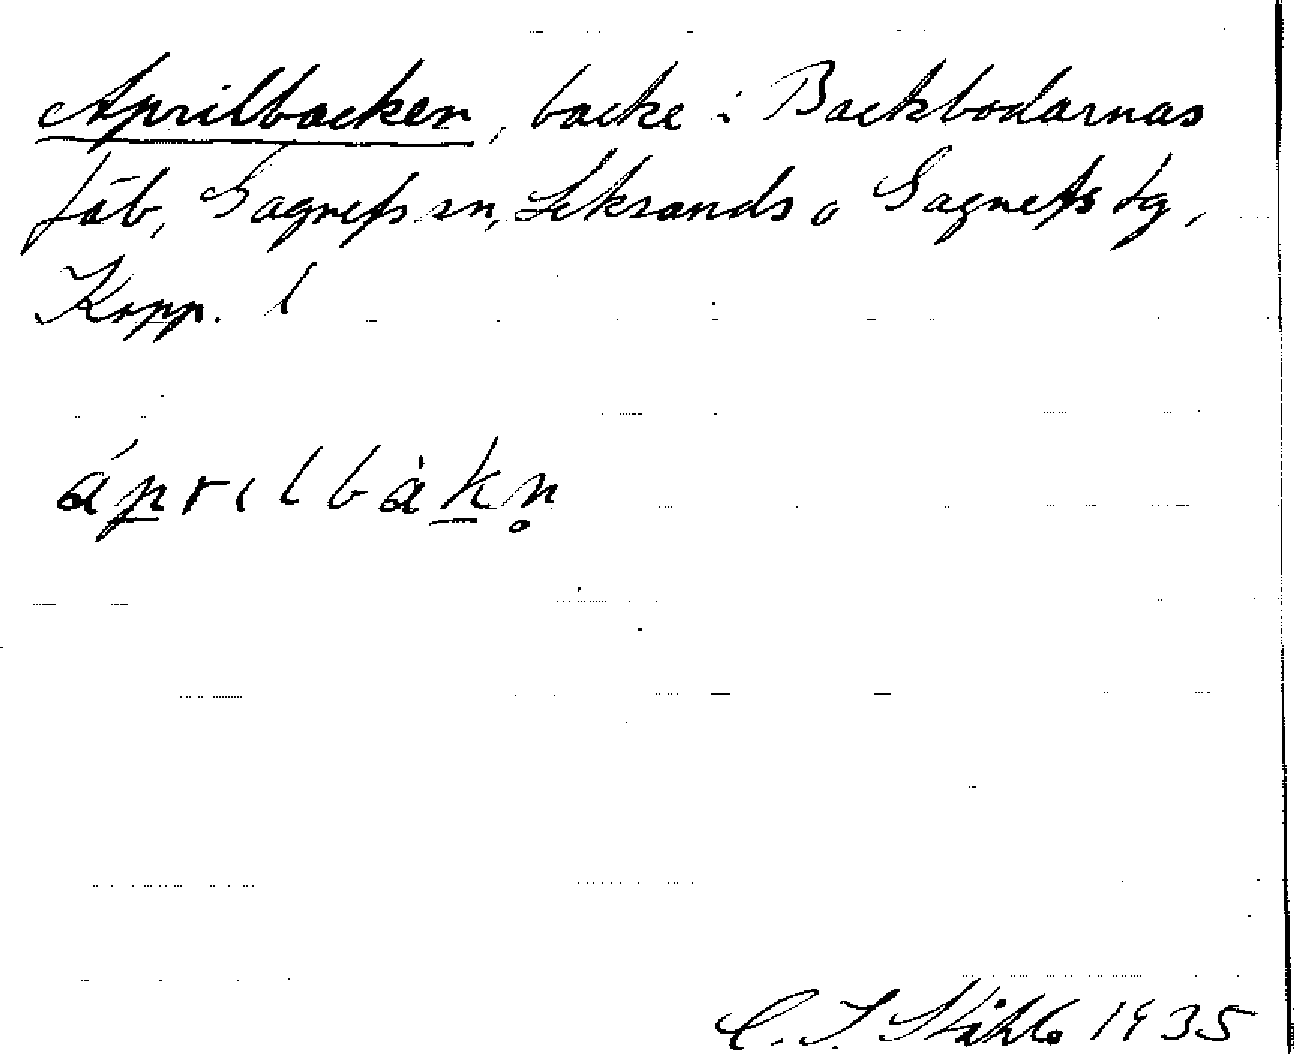 Aprilbacken, backe i Backbodarnas
fäb, Gagnefs sn, Leksands o Gagnefs tg,
Kopp. l
áprilbàkn̥
C. I. Ståhle 1935